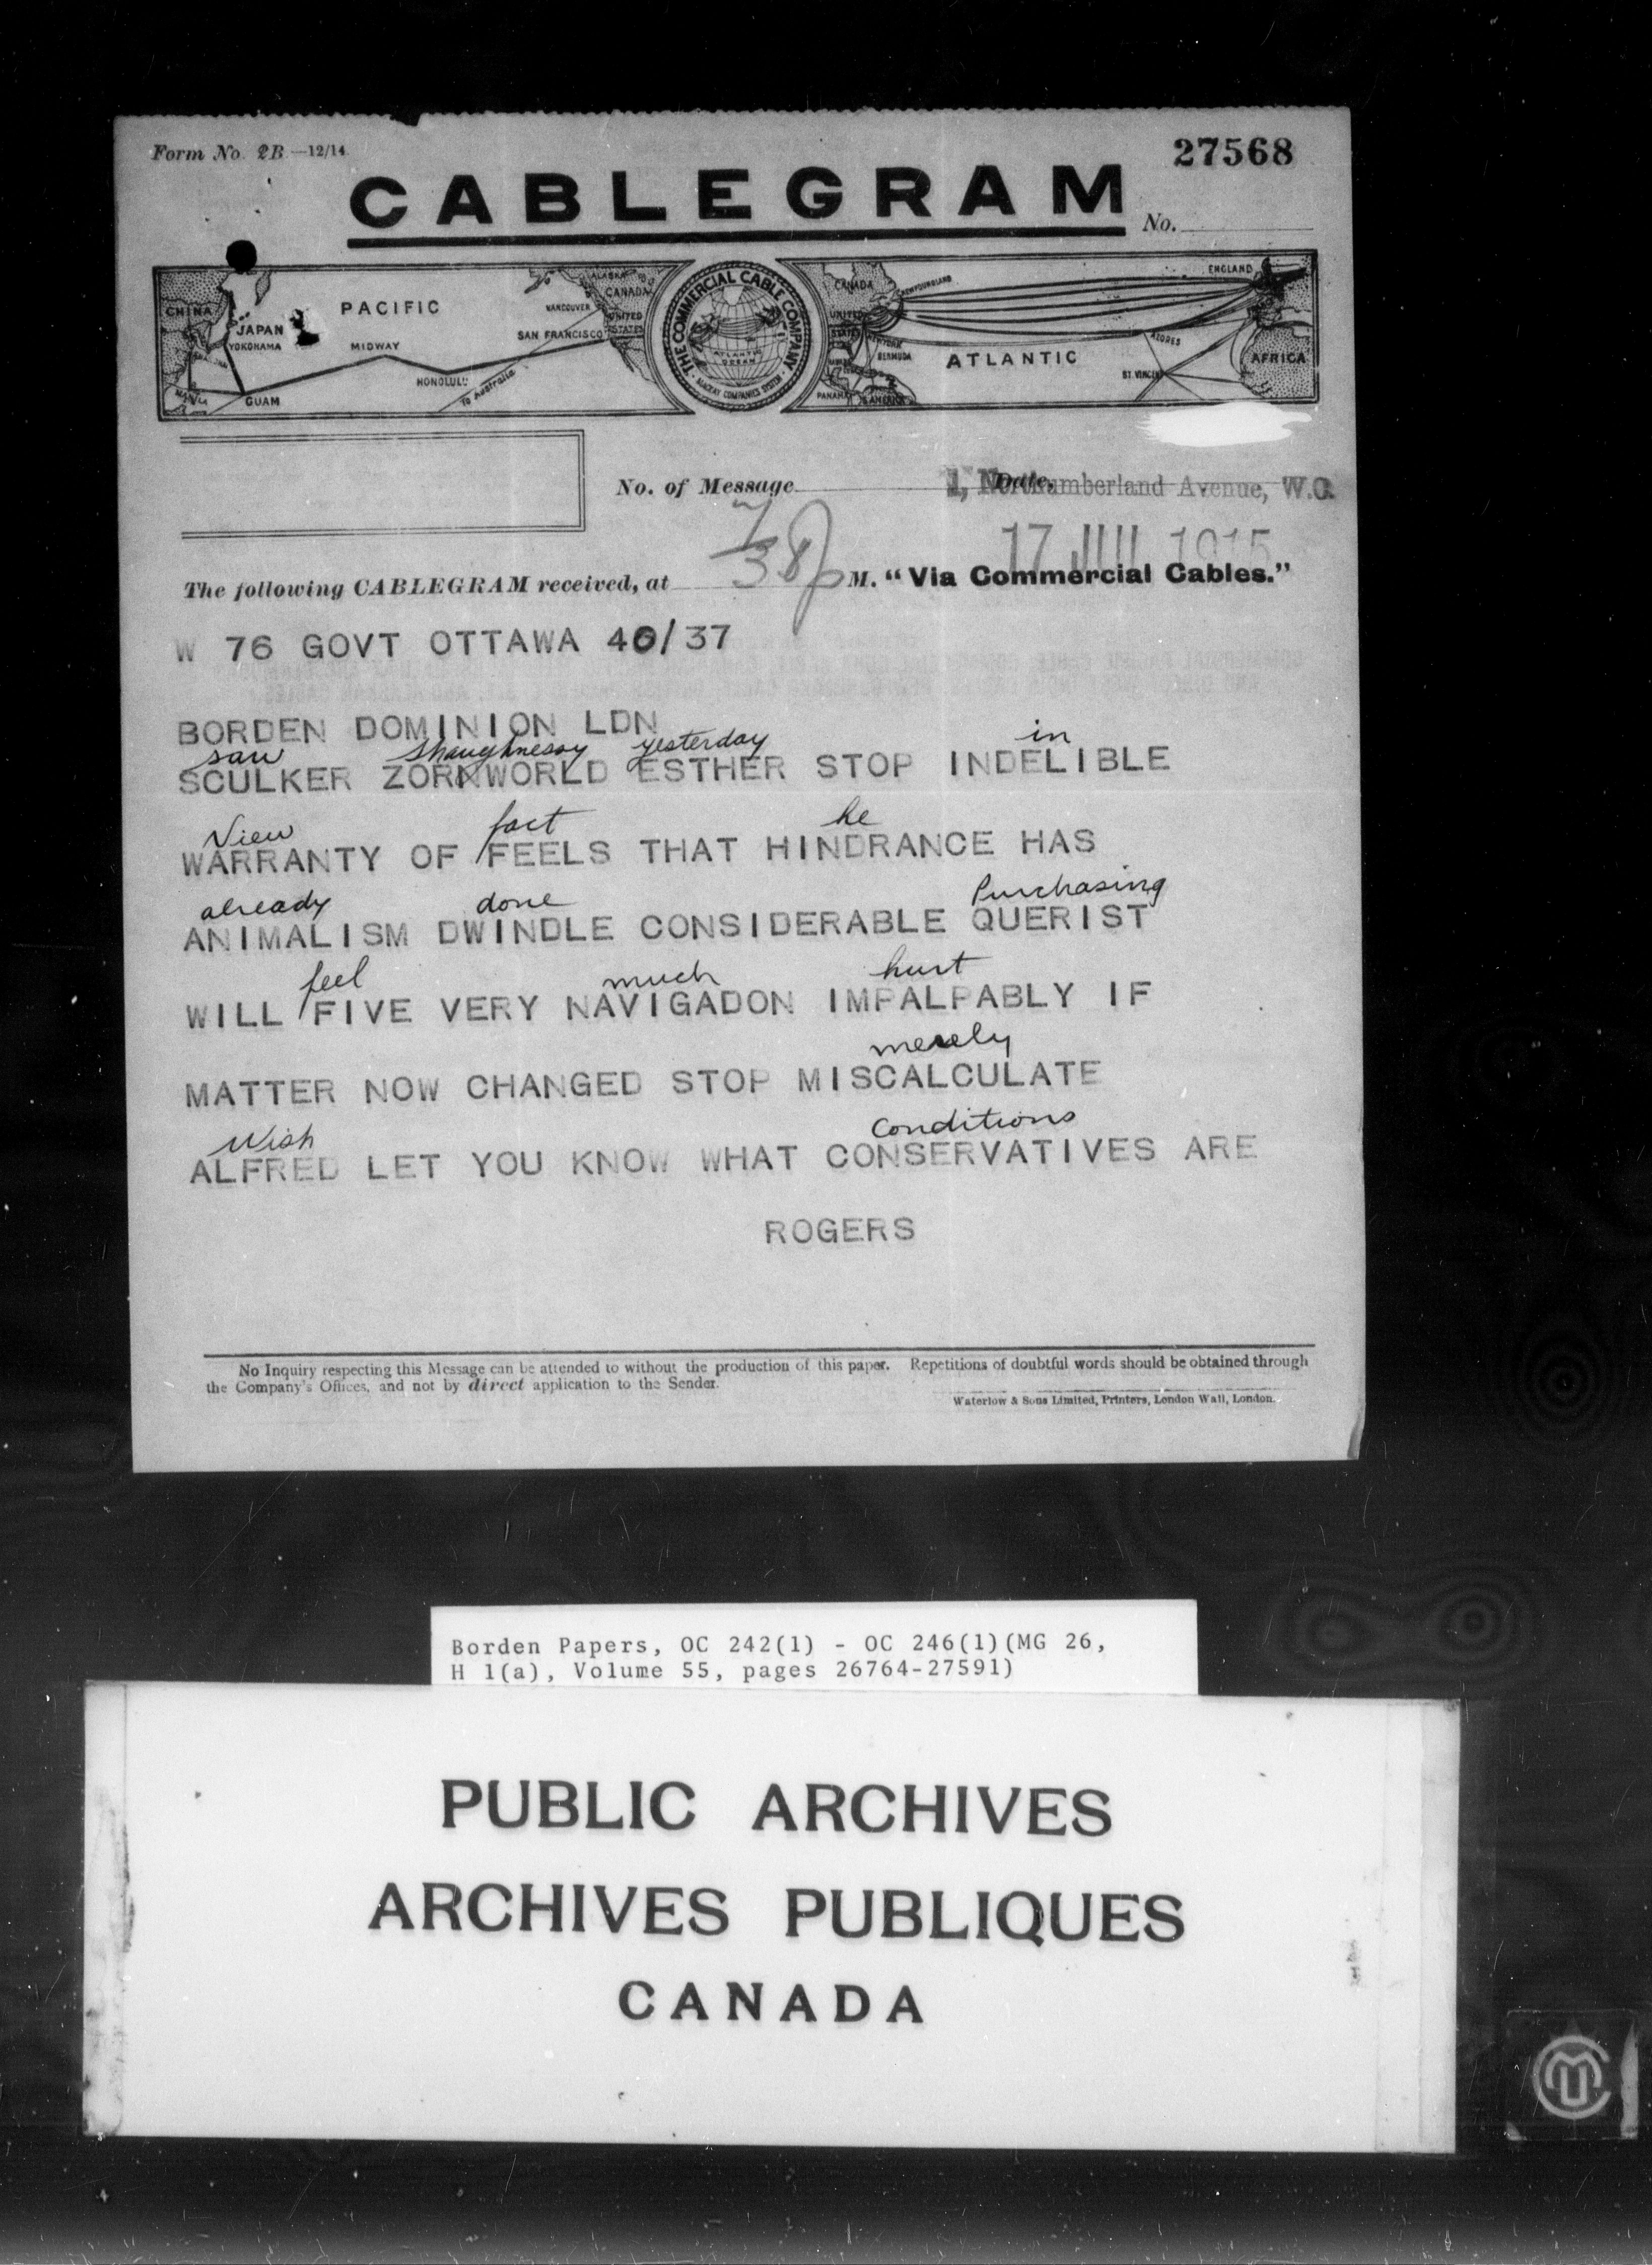 Form No. 2B—12/14.
27568
CABLEGRAM
No.
CHINA
JAPAN
YOKOHAMA
PACIFIC
MIDWAY
HONOLULU
GUAM
MANILA
To Australia
ALASKA
CANADA
VANCOUVER
UNITED STATES
SAN FRANCISCO
THE COMMERCIAL CABLE COMPANY
ATLANTIC OCEAN
MACKAY COMPANIES SYSTEM
CANADA
NEWFOUNDLAND
UNITED STATES
NEW YORK
BERMUDA
PANAMA
ATLANTIC
AZORES
ST. VINCENT
ENGLAND
AFRICA
No. of Message
Date,
1, Northumberland Avenue, W.C.
17 JUL 1915
The following CABLEGRAM received, at 7/38 p M. "Via Commercial Cables."
W 76 GOVT OTTAWA 40/37
BORDEN DOMINION LDN
saw Shaughnessy yesterday in
SCULKER ZORNWORLD ESTHER STOP INDELIBLE
View fact he
WARRANTY OF FEELS THAT HINDRANCE HAS
already done Purchasing
ANIMALISM DWINDLE CONSIDERABLE QUERIST
feel much hurt
WILL FIVE VERY NAVIGADON IMPALPABLY IF
merely
MATTER NOW CHANGED STOP MISCALCULATE
Wish Conditions
ALFRED LET YOU KNOW WHAT CONSERVATIVES ARE
ROGERS
No Inquiry respecting this Message can be attended to without the production of this paper. Repetitions of doubtful words should be obtained through
the Company's Offices, and not by direct application to the Sender.
Waterlow & Sons Limited, Printers, London Wall, London.
Borden Papers, OC 242(1) - OC 246(1)(MG 26,
H 1(a), Volume 55, pages 26764-27591)
PUBLIC ARCHIVES
ARCHIVES PUBLIQUES
CANADA